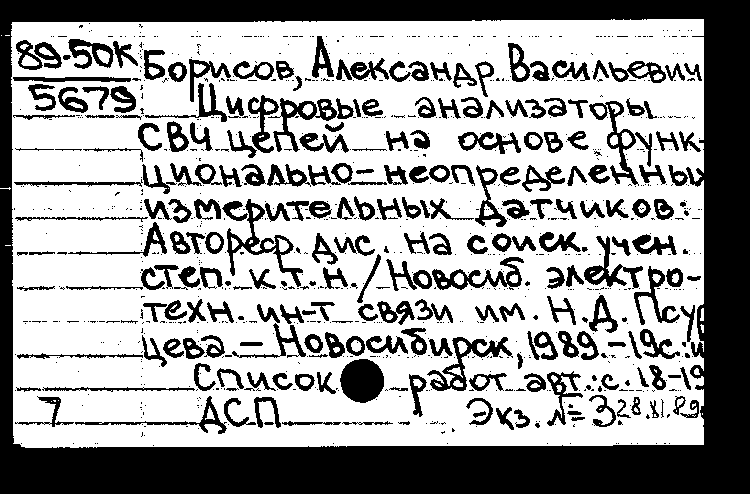 89-50К Борисов, Александр Васильевич
5679 Цифровые анализаторы
СВЧ цепей на основе функ-
ционально-неопределенных
измерительных датчиков:
Автореф. дис. на соиск. учен.
степ. к.т.н./Новосиб. электро-
техн. ин-т связи им. Н.Д. Псур
цева.-Новосибирск, 1989.-19с.:и
Список работ авт.:с.18-19
7 ДСП Экз. №3. 28.XI.89